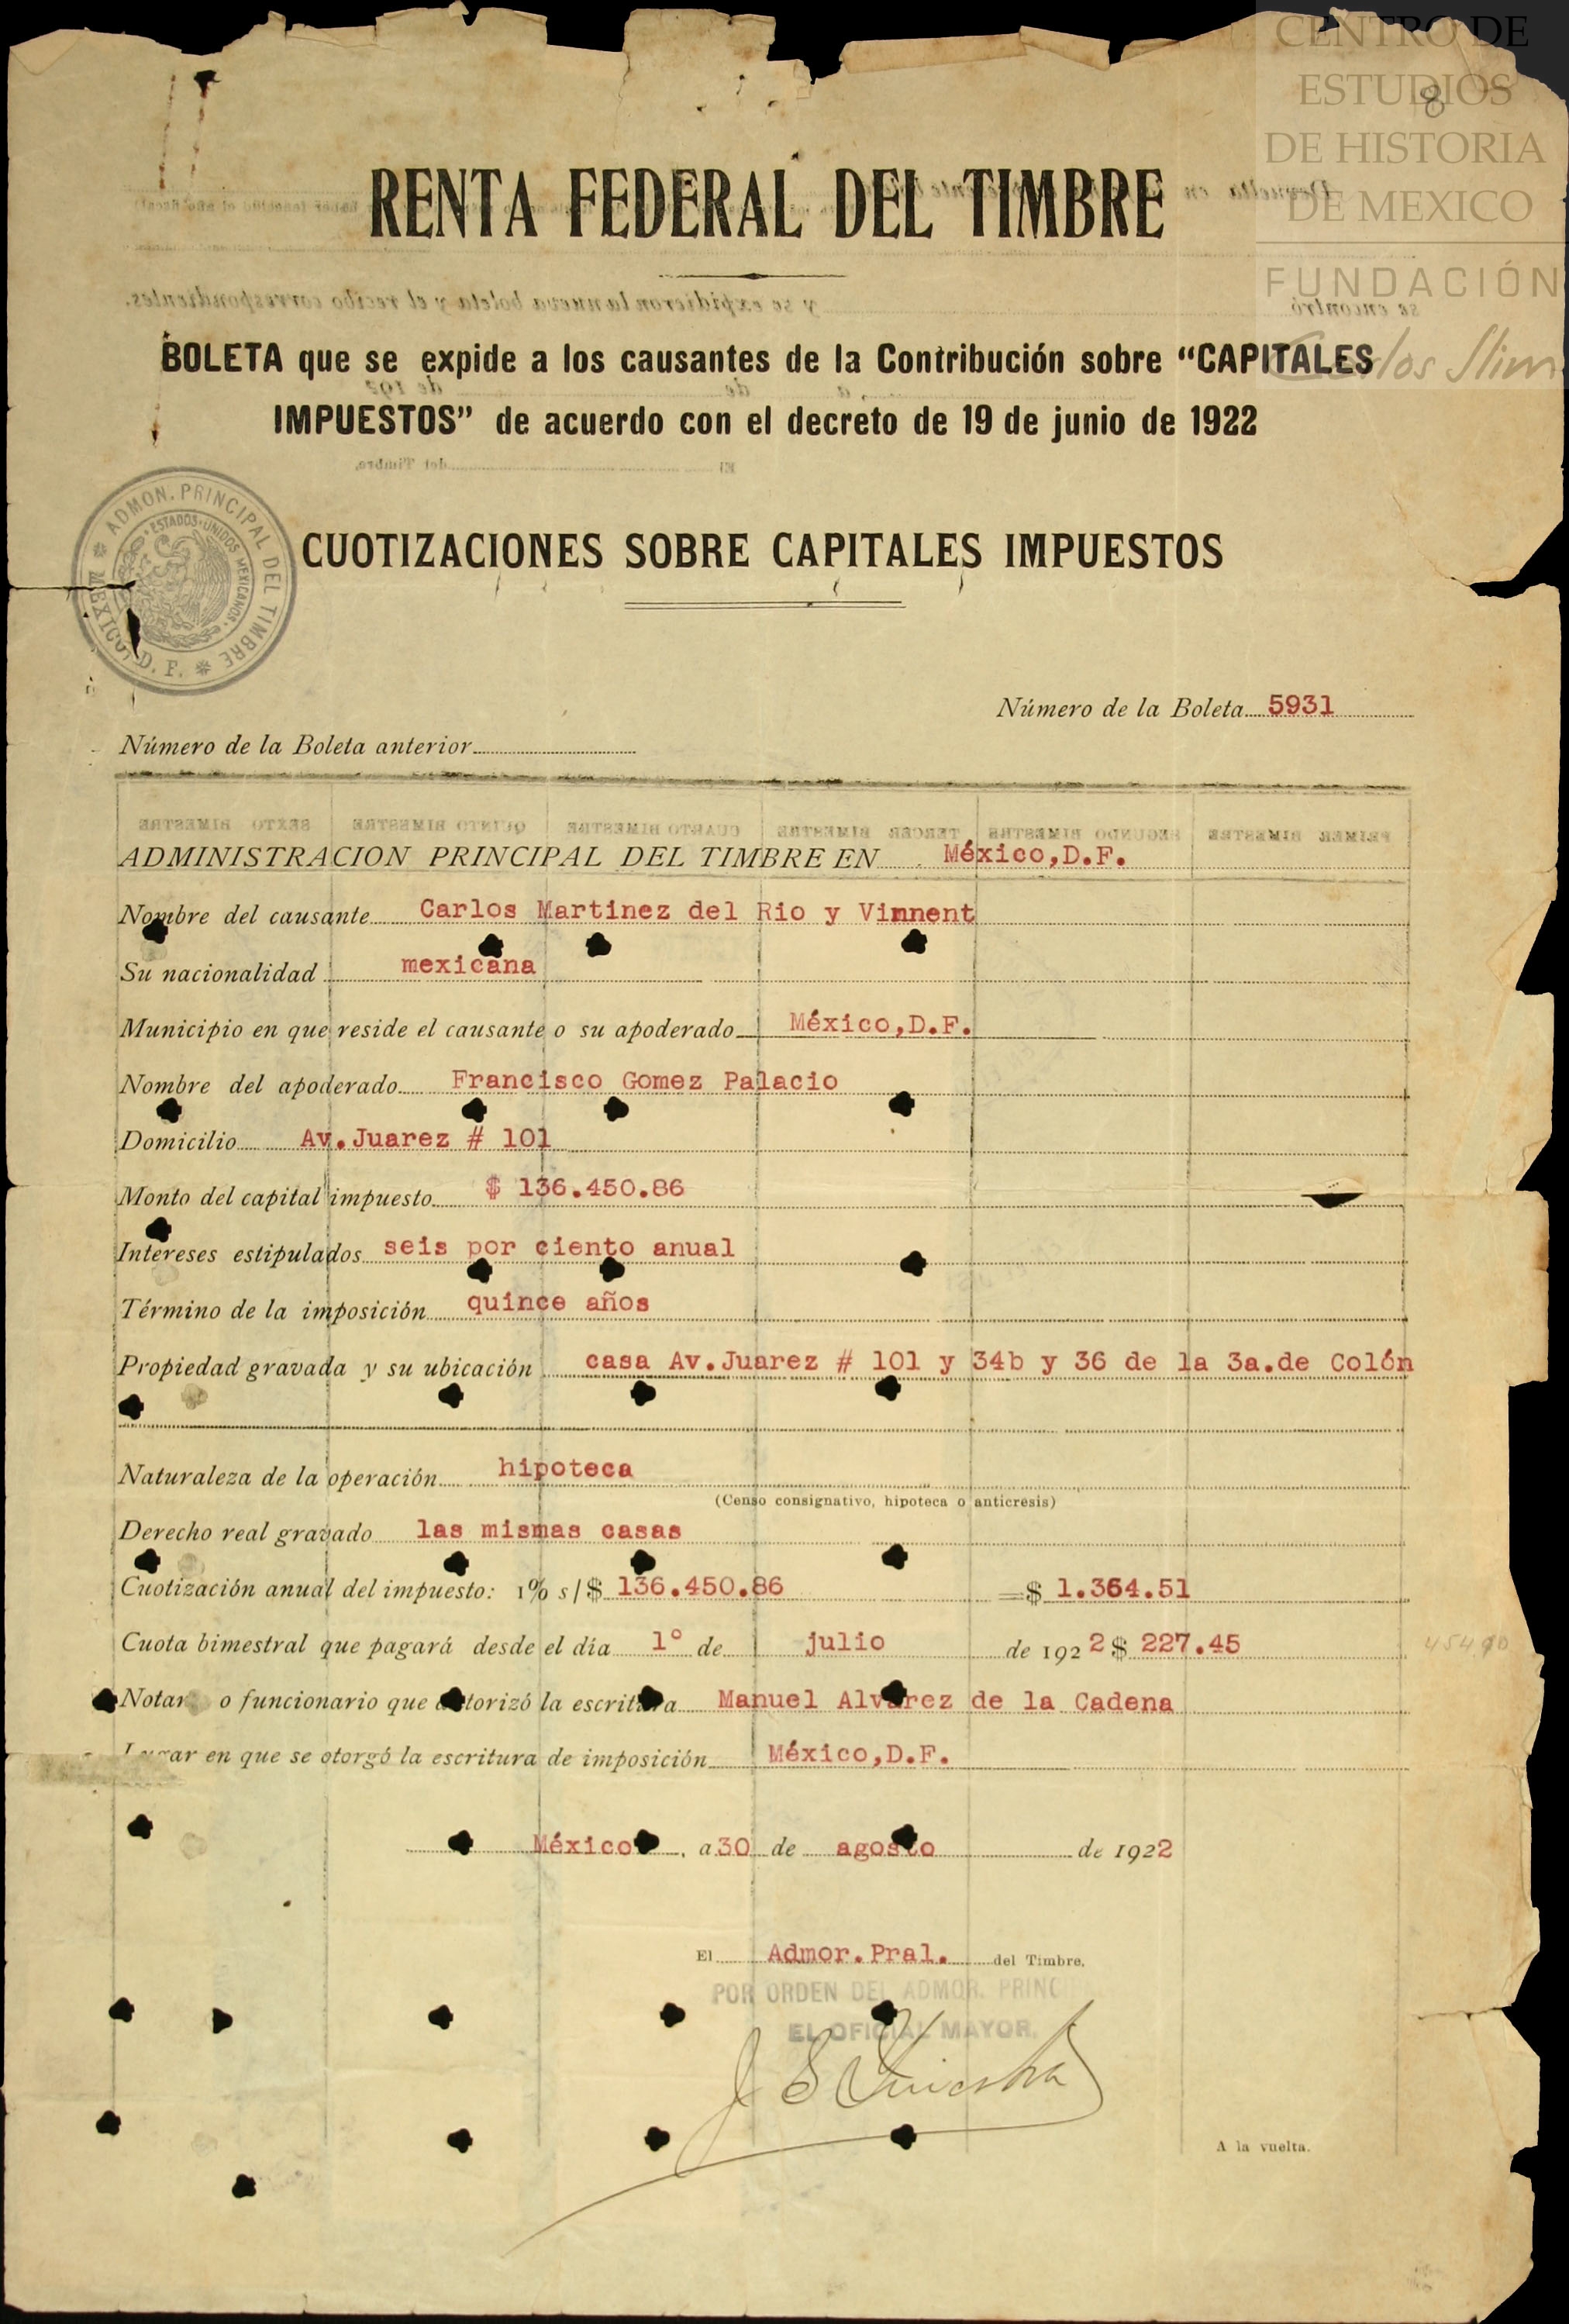 CENTRO DE
ESTUDIOS
DE HISTORIA
DE MEXICO
FUNDACIÓN
Carlos Slim
8
RENTA FEDERAL DEL TIMBRE
BOLETA que se expide a los causantes de la Contribución sobre “CAPITALES
IMPUESTOS” de acuerdo con el decreto de 19 de junio de 1922
ADMON. PRINCIPAL DEL TIMBRE
MEXICO, D. F.
ESTADOS UNIDOS MEXICANOS
CUOTIZACIONES SOBRE CAPITALES IMPUESTOS
Número de la Boleta 5931
Número de la Boleta anterior
ADMINISTRACION PRINCIPAL DEL TIMBRE EN México,D.F.
Nombre del causante Carlos Martinez del Rio y Vinnent
Su nacionalidad mexicana
Municipio en que reside el causante o su apoderado México,D.F.
Nombre del apoderado Francisco Gomez Palacio
Domicilio Av.Juarez # 101
Monto del capital impuesto $ 136.450.86
Intereses estipulados seis por ciento anual
Término de la imposición quince años
Propiedad gravada y su ubicación casa Av.Juarez # 101 y 34b y 36 de la 3a.de Colón
Naturaleza de la operación hipoteca
(Censo consignativo, hipoteca o anticresis)
Derecho real gravado las mismas casas
Cuotización anual del impuesto: 1% s/$ 136.450.86 =$ 1.364.51
Cuota bimestral que pagará desde el día 1º de julio de 1922 $ 227.45
454.90
o funcionario que autorizó la escritura Manuel Alvarez de la Cadena
Lugar en que se otorgó la escritura de imposición México,D.F.
México, a 30 de agosto de 1922
El Admor.Pral. del Timbre.
POR ORDEN DEL ADMOR. PRINC
EL OFICIAL MAYOR.
A la vuelta.